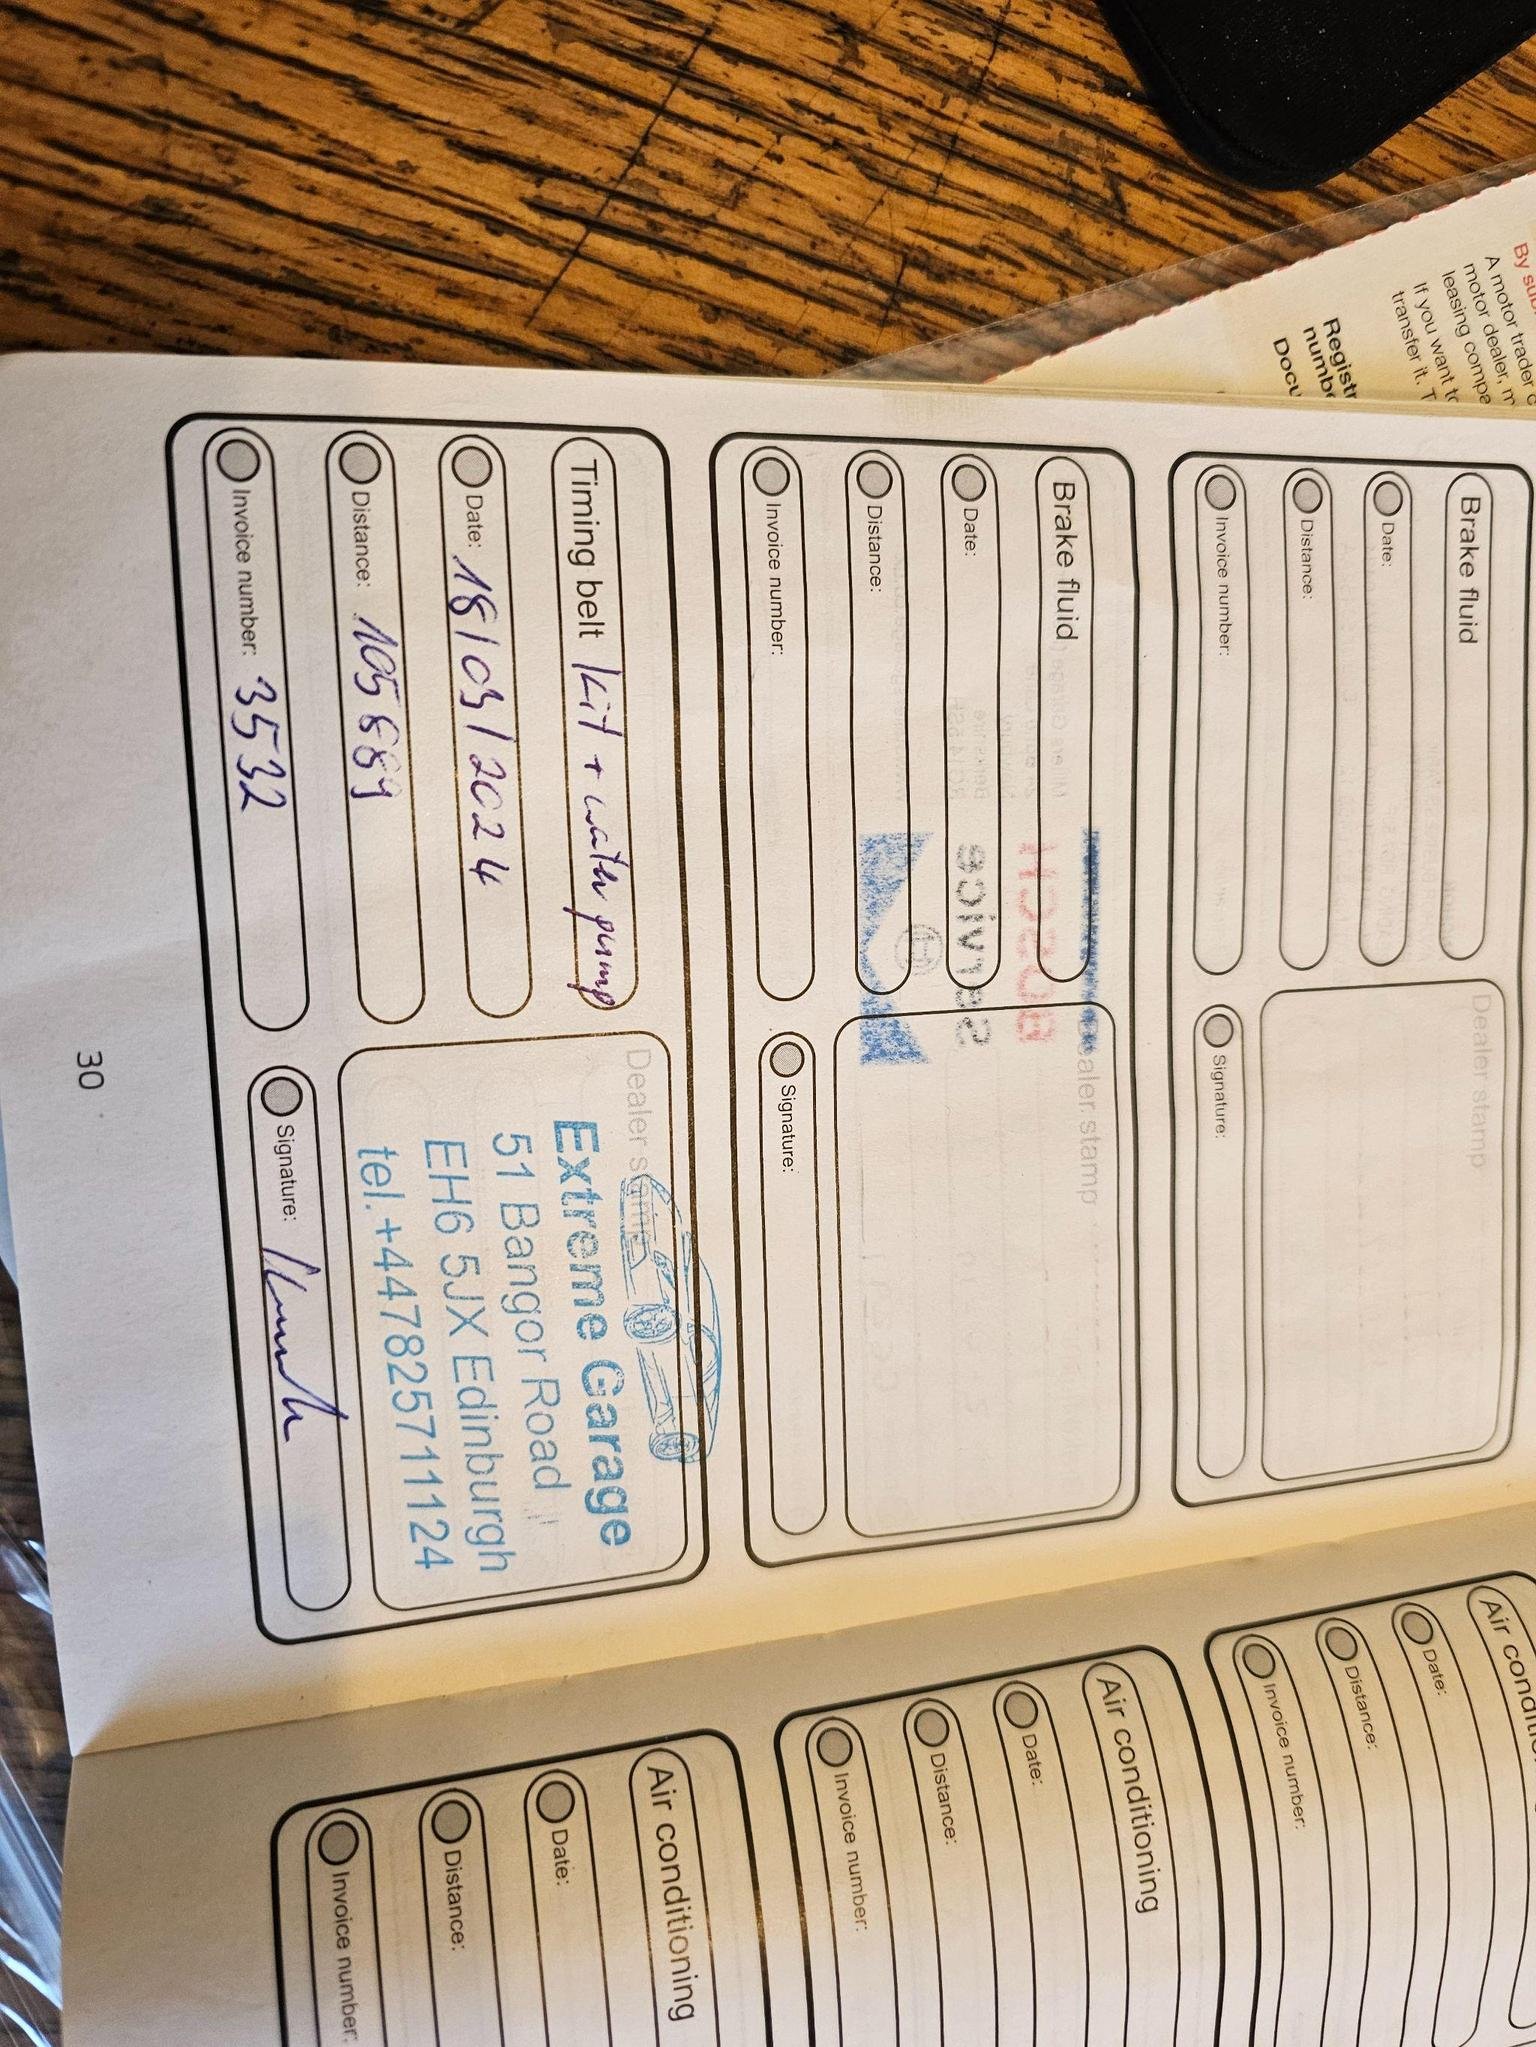 By
A motor trader
motor dealer, m
leasing compa
If you want to
transfer it. T
Registr
numbe
Docu
Brake fluid
Date:
Distance:
Invoice number:
Dealer stamp
Signature:
Brake fluid
Date:
Distance:
Invoice number:
Dealer stamp
Signature:
BOSCH
Service
Timing belt kit + water pump
Date: 18/03/2024
Distance: 105889
Invoice number: 3532
Dealer stamp
Extreme Garage
51 Bangor Road
EH6 5JX Edinburgh
tel.+447825711124
Signature:
30
Air conditio
Date:
Distance:
Invoice number:
Air conditioning
Date:
Distance:
Invoice number:
Air conditioning
Date:
Distance:
Invoice number: